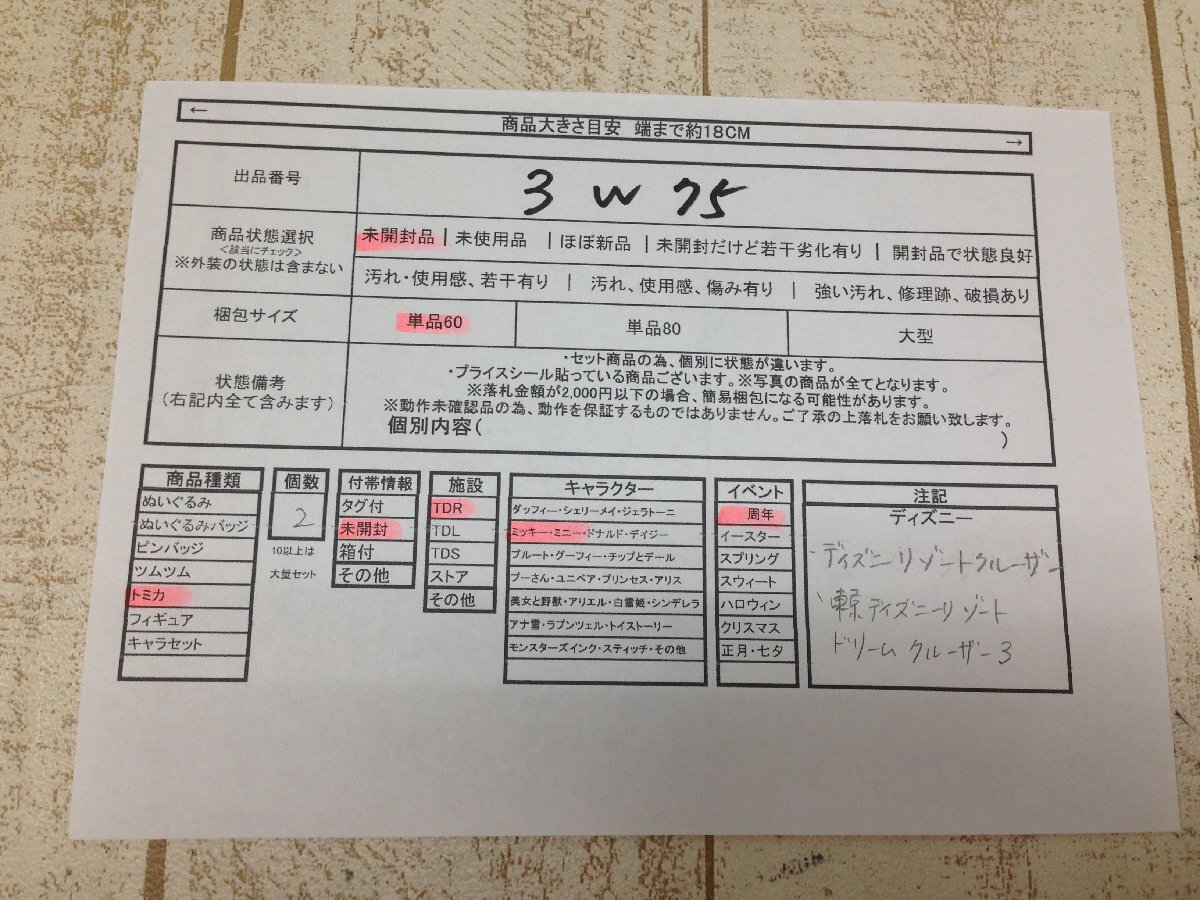 ←
商品大きさ目安 端まで約18CM
→
出品番号
3 W 75
商品状態選択
<該当にチェック>
※外装の状態は含まない
未開封品 | 未使用品 | ほぼ新品 | 未開封だけど若干劣化有り | 開封品で状態良好
汚れ・使用感、若干有り | 汚れ、使用感、傷み有り | 強い汚れ、修理跡、破損あり
梱包サイズ
単品60
単品80
大型
状態備考
(右記内全て含みます)
・セット商品の為、個別に状態が違います。
・プライスシール貼っている商品ございます。※写真の商品が全てとなります。
※落札金額が2,000円以下の場合、簡易梱包になる可能性があります。
※動作未確認品の為、動作を保証するものではありません。ご了承の上落札をお願い致します。
個別内容( )
商品種類
ぬいぐるみ
ぬいぐるみバッジ
ピンバッジ
ツムツム
トミカ
フィギュア
キャラセット
個数
2
10以上は
大量セット
付帯情報
タグ付
未開封
箱付
その他
施設
TDR
TDL
TDS
ストア
その他
キャラクター
ダッフィー・シェリーメイ・ジェラトーニ
ミッキー・ミニー・ドナルド・デイジー
プルート・グーフィー・チップとデール
プーさん・ユニベア・プリンセス・アリス
美女と野獣・アリエル・白雪姫・シンデレラ
アナ雪・ラプンツェル・トイストーリー
モンスターズインク・スティッチ・その他
イベント
周年
イースター
スプリング
スウィート
ハロウィン
クリスマス
正月・七夕
注記
ディズニー
・ディズニーリゾートクルーザー
・東京ディズニーリゾート
ドリームクルーザー3